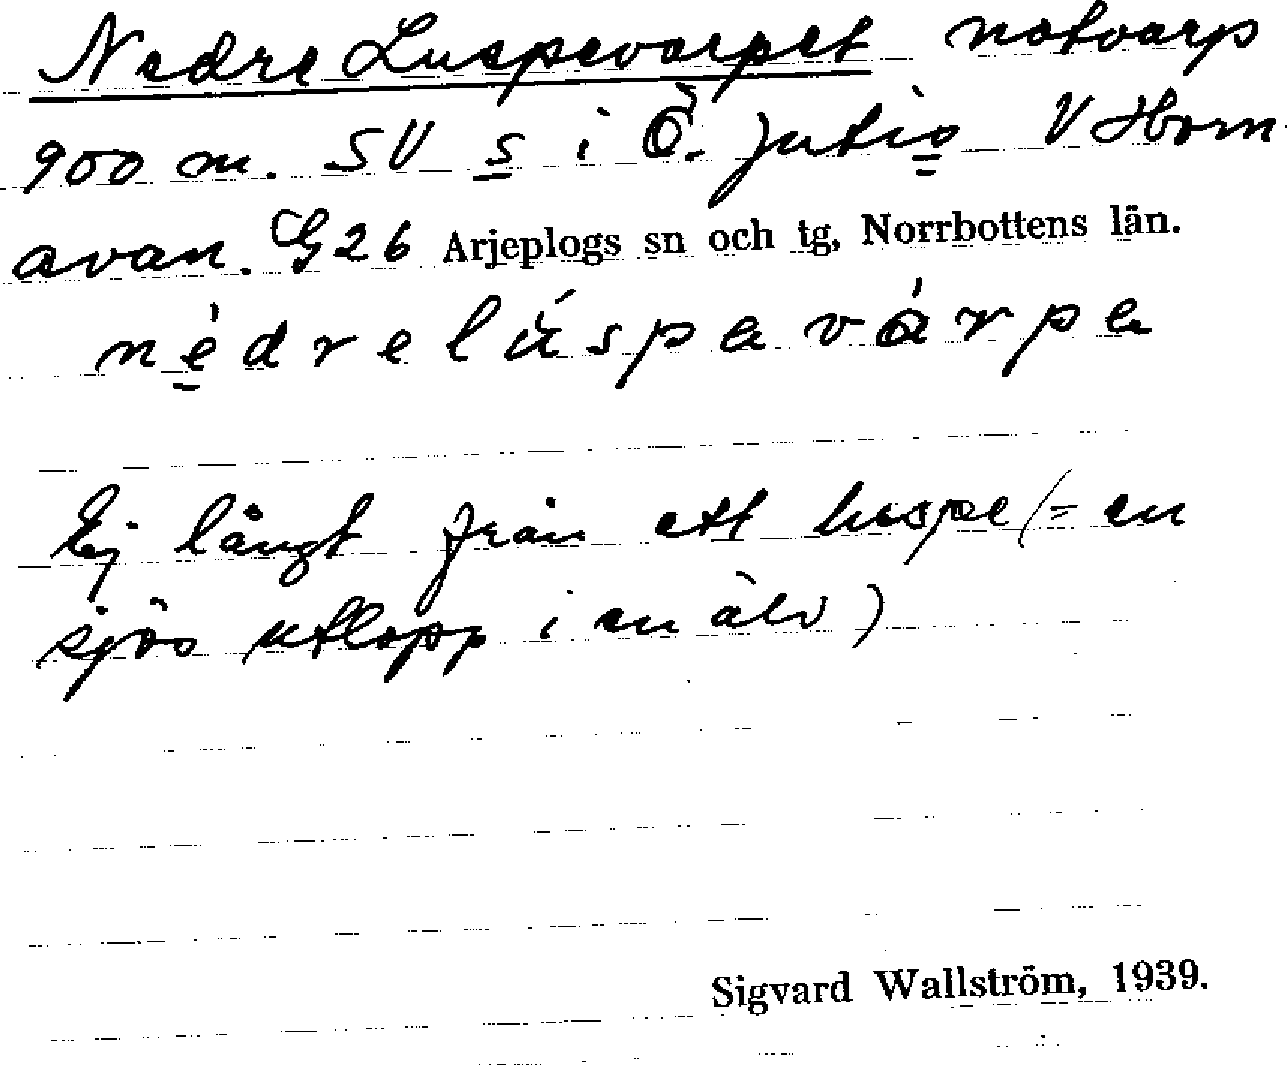 Nedre Luspevarpet notvarp
900 m. SV s i Ö. Jutis V Horn-
avan. G26 Arjeplogs sn och tg, Norrbottens län.
nèdrelúspavàrpa
Ej långt från ett luspe (= en
sjös utlopp i en älv)
Sigvard Wallström, 1939.